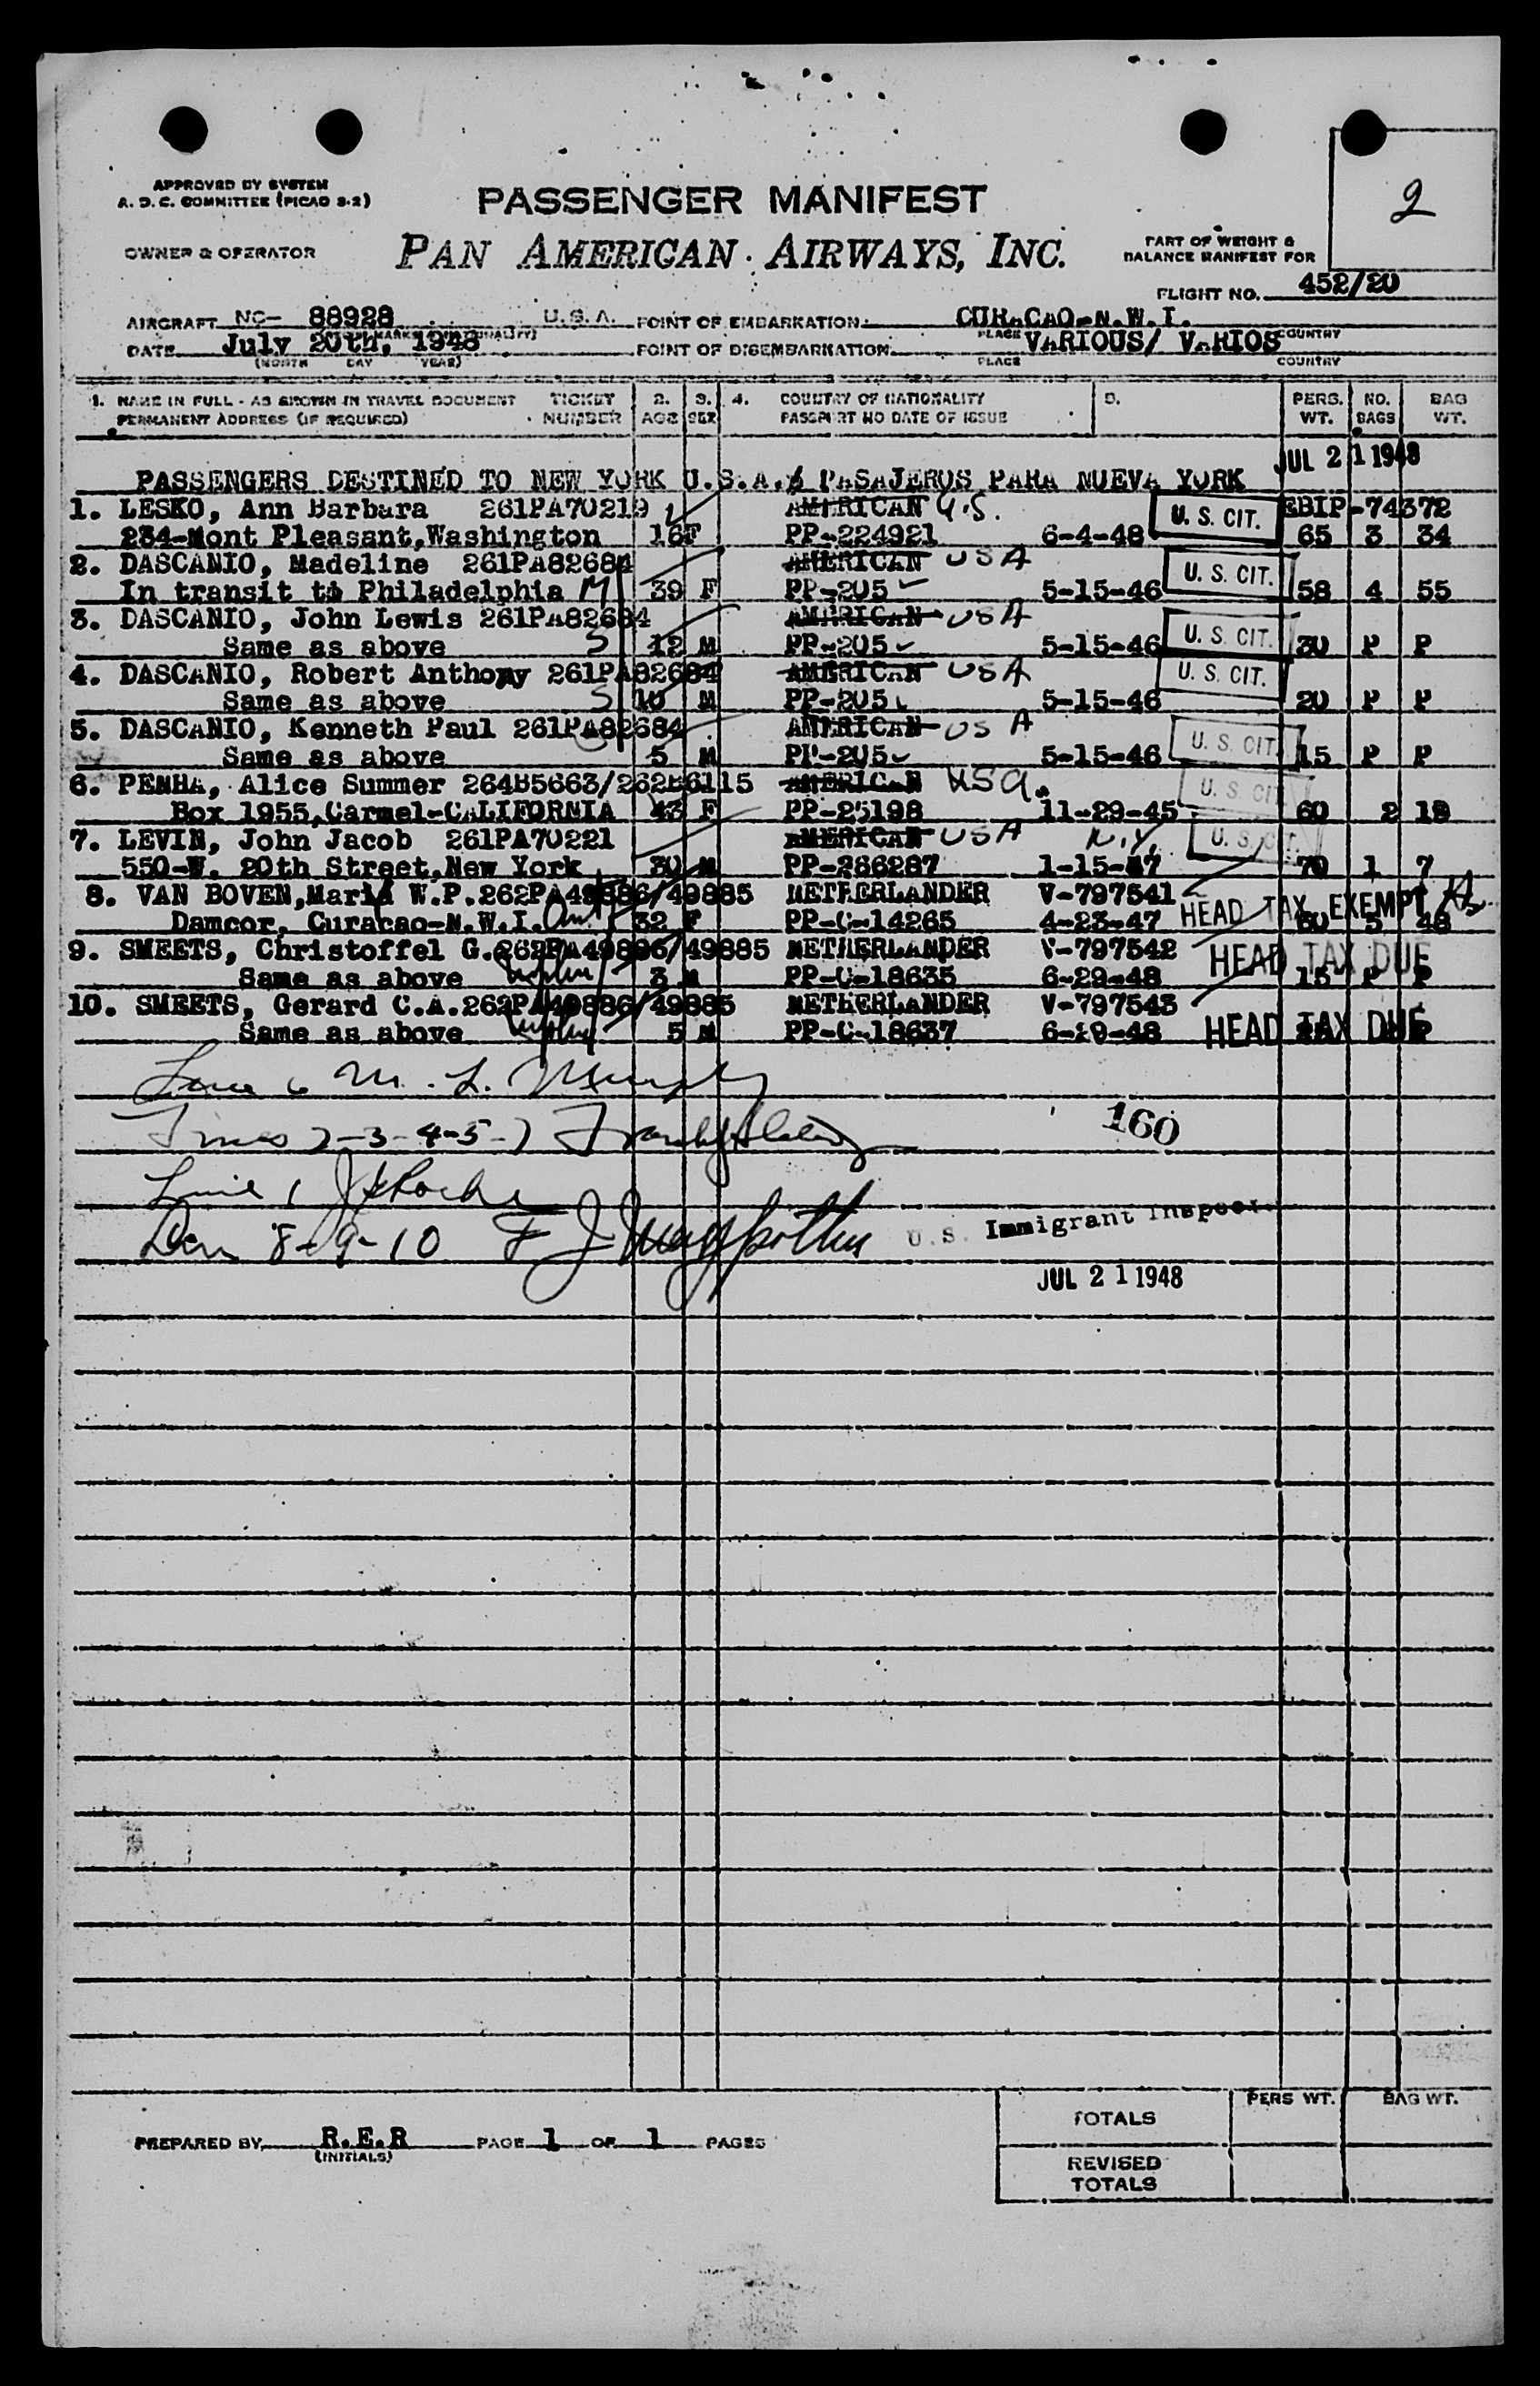 2
APPROVED BY SYSTEM
A. D. C. COMMITTEE (PICAO S-2)
PASSENGER MANIFEST
OWNER & OPERATOR
PAN AMERICAN AIRWAYS, INC.
PART OF WEIGHT &
BALANCE MANIFEST FOR
FLIGHT NO. 452/20
AIRCRAFT NC- 88928 U.S.A. POINT OF EMBARKATION CURACAO-N.W.I.
PLACE COUNTRY
DATE July 20th, 1948 POINT OF DISEMBARKATION VARIOUS/ VARIOS
(MONTH DAY YEAR) PLACE COUNTRY
1. NAME IN FULL - AS SHOWN IN TRAVEL DOCUMENT TICKET 2. 3. 4. COUNTRY OF NATIONALITY 5. PERS. NO. BAG
PERMANENT ADDRESS (IF REQUIRED) NUMBER AGE SEX PASSPORT NO DATE OF ISSUE WT. BAGS WT.
JUL 21 1948
PASSENGERS DESTINED TO NEW YORK U.S.A./ PASAJEROS PARA NUEVA YORK
1. LESKO, Ann Barbara 261PA70219 AMERICAN U.S. U. S. CIT. EBIP-74372
234-Mont Pleasant,Washington 16F PP-224921 6-4-48 65 3 34
2. DASCANIO, Madeline 261PA82684 AMERICAN USA U. S. CIT.
In transit to Philadelphia M 39 F PP-205 5-15-46 58 4 55
3. DASCANIO, John Lewis 261PA82684 AMERICAN USA
Same as above S 12 M PP-205 5-15-46 U. S. CIT. 30 P P
4. DASCANIO, Robert Anthony 261PA82684 AMERICAN USA U. S. CIT.
Same as above S 10 M PP-205 5-15-46 20 P P
5. DASCANIO, Kenneth Paul 261PA82684 AMERICAN USA
Same as above 5 M PP-205 5-15-46 U. S. CIT. 15 P P
6. PENHA, Alice Summer 264B5663/262B6115 AMERICAN USA. U. S. CIT.
Box 1955,Carmel-CALIFORNIA 43 F PP-25198 11-29-45 60 2 19
7. LEVIN, John Jacob 261PA70221 AMERICAN USA N.Y. U. S. CIT.
550-W. 20th Street,New York 30 M PP-266287 1-15-47 70 1 7
8. VAN BOVEN,Maria W.P.262PA49886/49885 NETHERLANDER V-797541
Damcor, Curacao-N.W.I. 32 F PP-C-14265 4-23-47 HEAD TAX EXEMPT 60 5 48
9. SMEETS, Christoffel G.262PA49886/49885 NETHERLANDER V-797542
Same as above nephew 3 M PP-C-18635 6-29-48 HEAD TAX DUE 15 P P
10. SMEETS, Gerard C.A.262PA49886/49885 NETHERLANDER V-797543
Same as above nephew 5 M PP-C-18637 6-29-48 HEAD TAX DUE P
Line 6 M. L. Murphy
Lines 2-3-4-5-7
160
Line 1
8-9-10 F J
U. S. Immigrant Inspector
JUL 21 1948
TOTALS PERS WT. BAG WT.
PREPARED BY R.E.R PAGE 1 OF 1 PAGES
(INITIALS)
REVISED
TOTALS